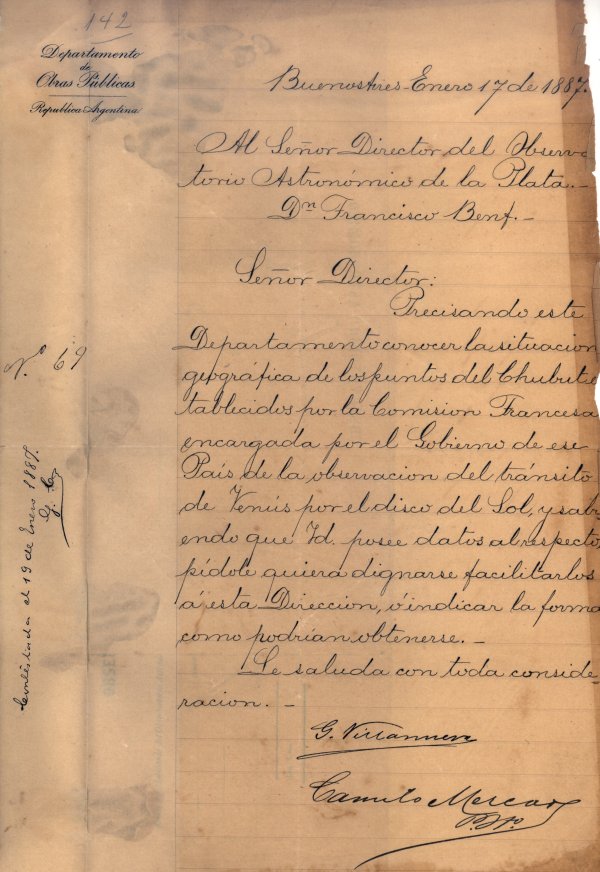 142
Departamento
de
Obras Públicas
Republica Argentina
Buenos Aires Enero 17 de 1887.
Al Señor Director del Observa
torio Astronómico de la Plata.-
Dn Francisco Benf.-
Señor Director:
Precisando este
Departamento conocer la situacion
geográfica de los puntos del Chubut e
tablecidos por la Comision Francesa
encargada por el Gobierno de ese
País de la observacion del tránsito
de Venús por el disco del Sol, y sabi
endo que Vd. posee datos al respecto,
pídole quiera dignarse facilitarlos
á esta Direccion, ó indicar la forma
como podrían obtenerse.-
Le saluda con toda conside-
racion.-
G. Villanueva
Camilo Mercado
N.º 69
Contestada el 19 de Enero 1887.